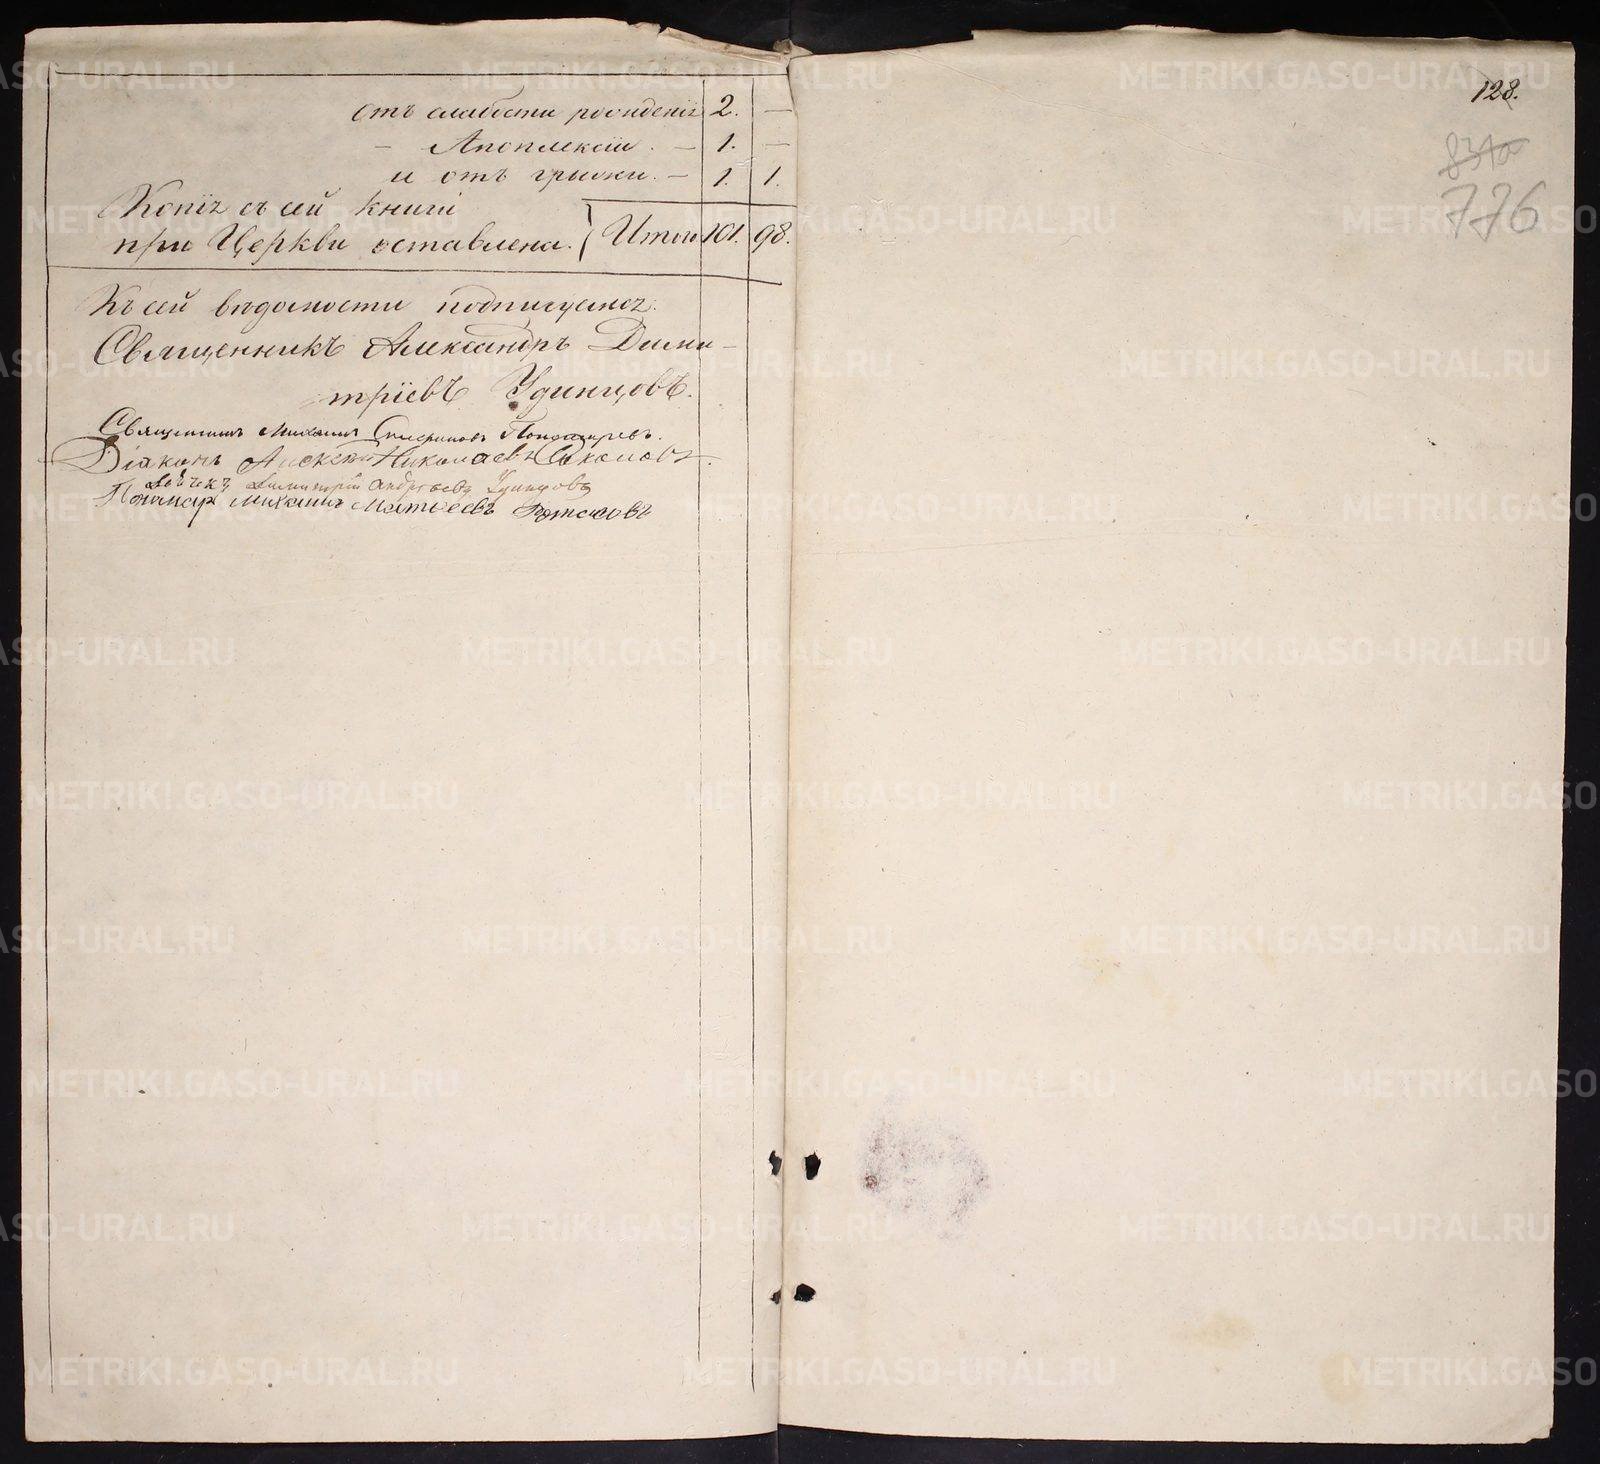 отъ слабости рожденія 2. —
— Апоплексіи. — 1. —
и отъ грыжи. — 1. 1.
Копія съ сей книги
при Церкви оставлена. Итого 101. 98.
Къ сей вѣдомости подписуемся:
Священникъ Александръ Дими-
тріевъ Удинцовъ.
Священникъ Михаилъ
Діаконъ Алексѣй Николаевъ Соколовъ.
Дьячекъ Димитрій Андреевъ Удинцовъ
Пономарь Михаилъ Матѳеевъ
128.
831а
776
METRIKI.GASO-URAL.RU